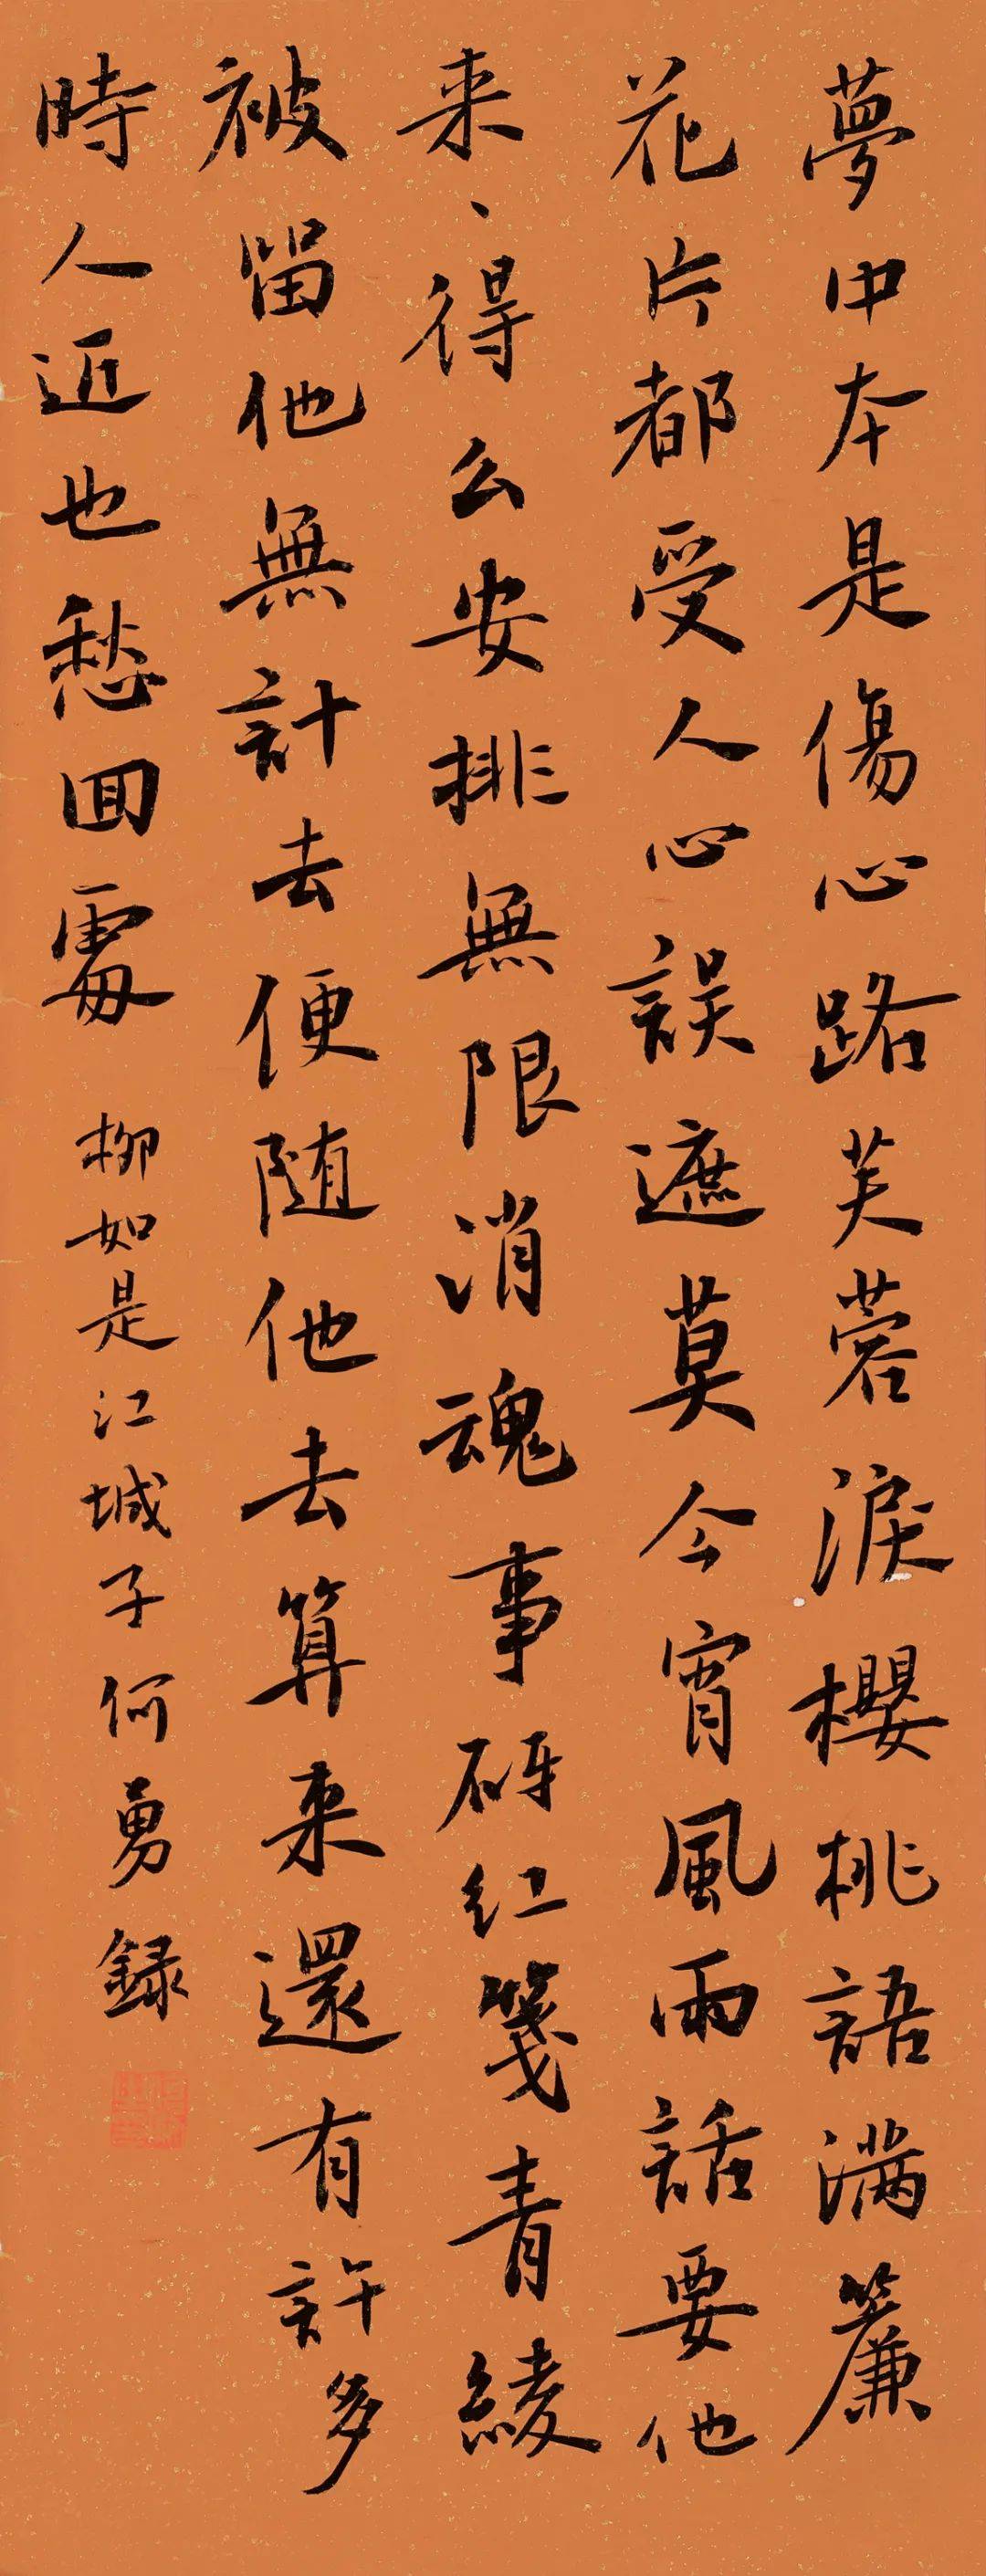 夢中本是傷心路芙蓉淚櫻桃語滿簾
花片都受人心誤遮莫今宵風雨話要他
来、得么安排無限消魂事砑紅箋青綾
被留他無計去便随他去算来還有許多
時人近也愁回處
柳如是江城子何勇録